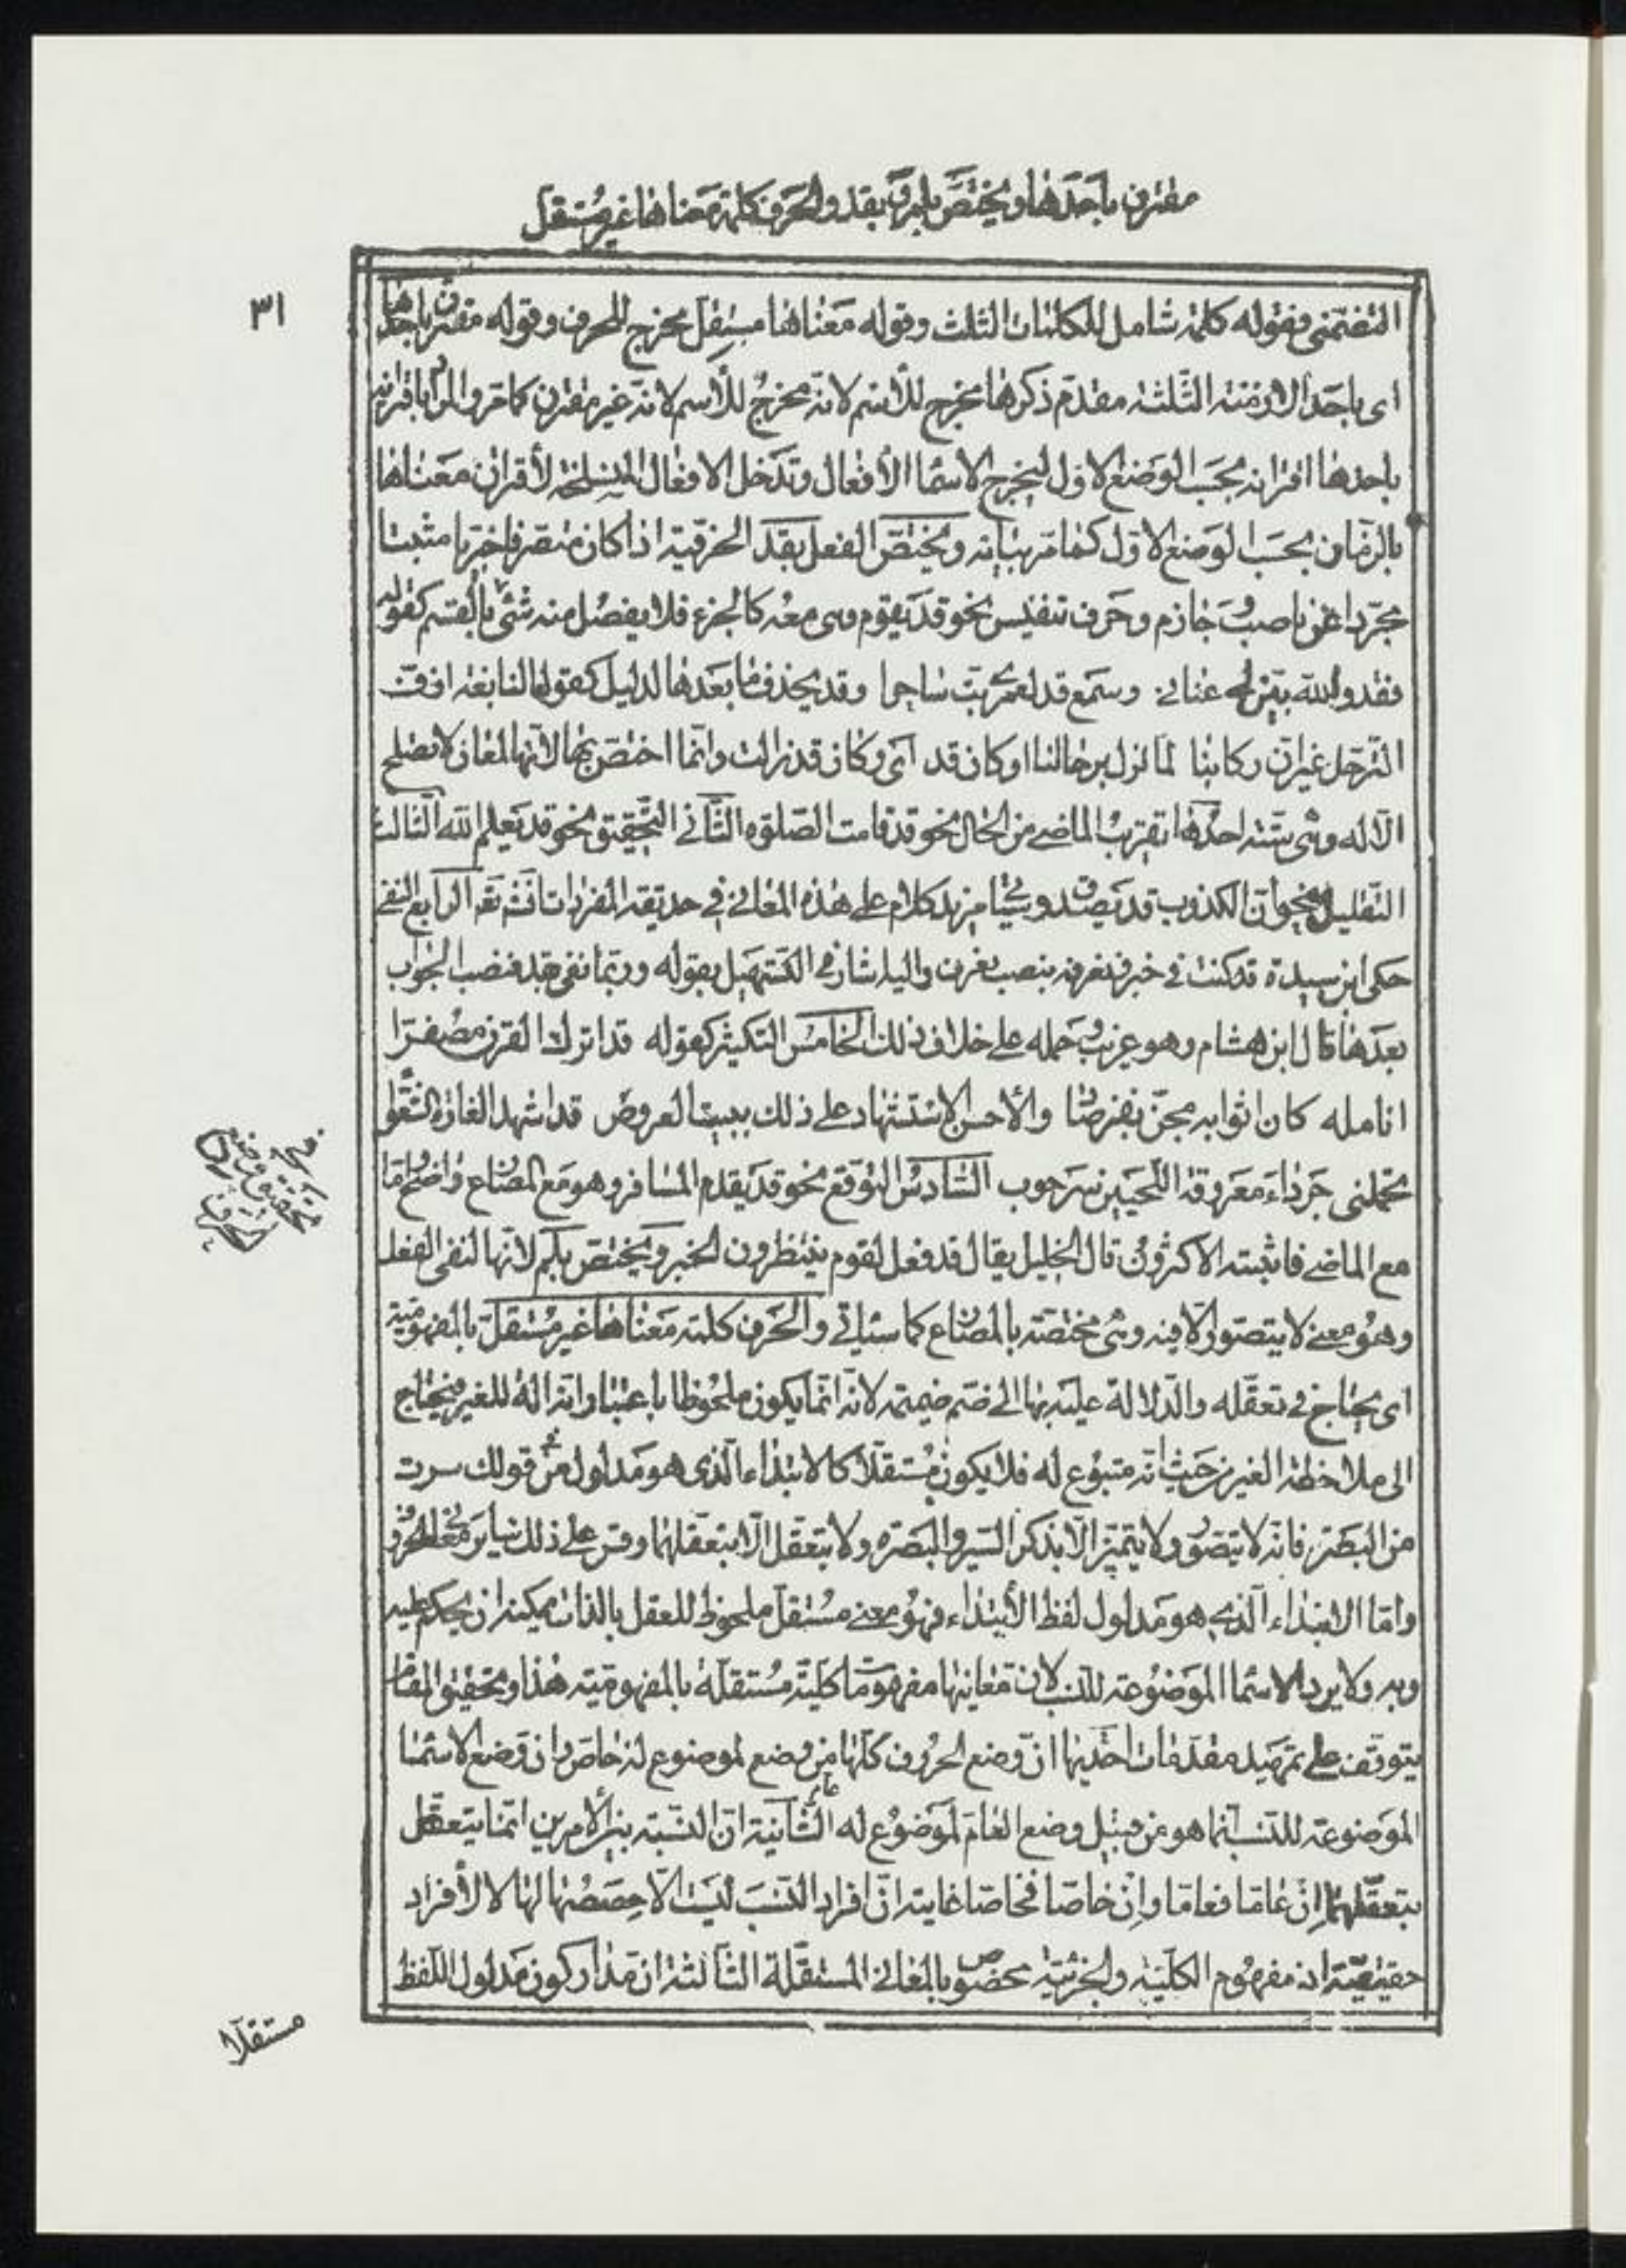 مقترن باحدها ويختص بلم وبقد والحرف كلمة معناها غير مستقل
٣١
التضمنى فقوله كلمة شامل للكلمات الثلث وقوله معناها مستقل مخرج للحرف وقوله مقترن باحدها
اى باحد الازمنة الثلثة مقدم ذكرها مخرج للاسم لانه مخرج للاسم لانه غير مقترن كما مر والمراد باقترانه
باحدها اقترانه بحسب الوضع الاول ليخرج الاسما الأفعال وتدخل الافعال المنسلخة لأقتران معناها
بالزمان بحسب الوضع الاول كما مر بيانه ويختص الفعل بقد الحرفية اذا كان متصرفا خبريا مثبتا
مجردا عن ناصب وجازم وحرف تنفيس نحو قد يقوم وهى معه كالجزء فلا يفصل منه شئ الا بالقسم كقوله
فقد والله بين لى عنائى وسمع قد لعمرى بت ساهرا وقد يحذف ما بعدها لدليل كقول النابغة افدت
الترحل غير ان ركابنا لما تزل برحالنا وكان قد اى وكان قد زالت وانما اختص بها لانها لمعان لا تصلح
الا له وهى ستة احدها تقريب الماضى من الحال نحو قد قامت الصلوة الثانى التحقيق نحو قد يعلم الله الثالث
التقليل نحو ان الكذوب قد يصدق وسيجئ مزيد كلام على هذه المعانى فى حديقة المفردات انشم تعم الرابع النفى
حكى ابن سيدة قد كنت فى خير فتعرفه بنصب تعرف واليه اشار فى التسهيل بقوله وربما نفى بقد فنصب الجواب
بعدها قال ابن هشام وهو غريب وحمله على خلاف ذلك الخامس التكثير كقوله قد اترك القرن مصفرا
انامله كان اثوابه مجت بفرصاد والأحسن الاستشهاد على ذلك ببيت العروض قد اشهد الغارة الشعوا
تحملنى جرداء معروقة اللحيين سرحوب السادس التوقع نحو قد يقدم المسافر وهو مع المضارع واضح واما
مع الماضى فاثبته الاكثرون قال الخليل يقال قد فعل لقوم ينتظرون الخبر ويختص بلم لانها لنفى الفعل
وهو معنى لا يتصور الا فيه وهى مختصة بالمضارع كما سيأتى والحرف كلمة معناها غير مستقل بالمفهومية
اى يحتاج فى تعقله والدلالة عليه بها الى ضم ضميمة لانه انما يكون ملحوظا باعتبار انه الة للغير فيحتاج
الى ملاحظة الغير من حيث انه متبوع له فلا يكون مستقلا كالابتداء الذى هو مدلول من فى قولك سرت
من البصرة فانه لا يتصور ولا يتميز الا بذكر السير والبصرة ولا يتعقل الا بتعقلهما وقس على ذلك سائر معانى الحروف
واما الابتداء الذى هو مدلول لفظ الأبتداء فهو معنى مستقل ملحوظ للعقل بالذات يمكنه ان يحكم عليه
وبه ولا يرد الاسما الموضوعة للنسب لان معانيها مفهومات كلية مستقلة بالمفهومية هذا وتحقيق المقام
يتوقف على تمهيد مقدمات احديها ان وضع الحروف كلها من وضع لموضوع له خاص وان وضع الاسما
الموضوعة للنسب انما هو من قبيل وضع العام لموضوع له عام الثانية ان النسبة بين الأمرين انما يتعقل
بتعقلهما ان عاما فعاما وان خاصا فخاصا غايته ان افراد النسب ليست الا حصصها لها لا الأفراد
حقيقية اذ مفهوم الكلية والجزئية مخصوص بالمعانى المستقلة الثالثة ان مدار كون مدلول اللفظ
فى تحقيق وضع الحرف
مستقلا